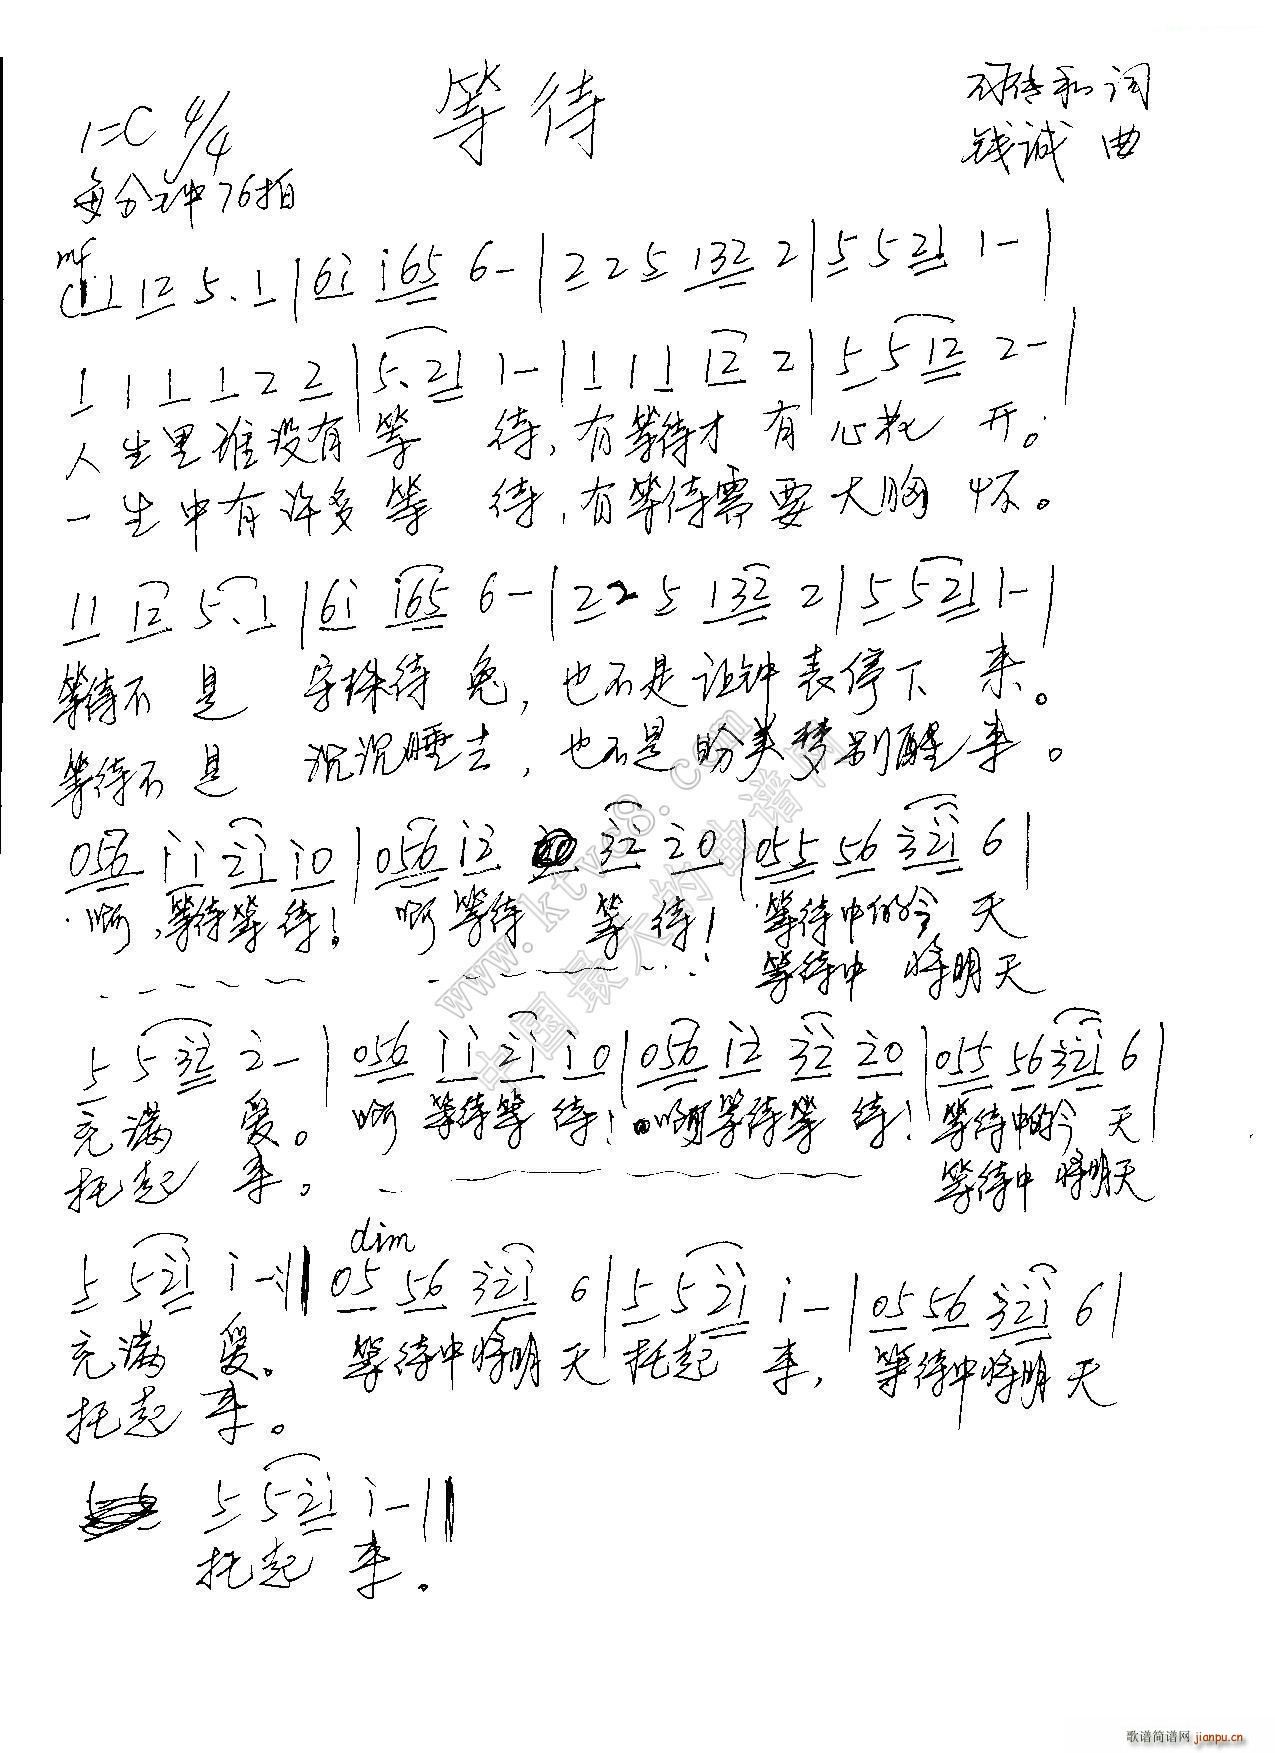 等待
和词
1=C 4/4
钱诚 曲
每分钟76拍
mf
1 12 5. 1 | 6i i65 6- | 2 2 5 132 2 | 5 5 21 1- |
1 1 1 1 2 2 | 5. 21 1- | 1 1 1 12 2 | 5 5 12 2- |
人生里谁没有等 待,有等待才 有 心花 开。
一生中有许多等 待,有等待需要大胸 怀。
11 12 5. 1 | 6i i65 6- | 2 2 5 132 2 | 5 5 21 1- |
等待不 是 守株待 兔, 也不是让钟表停下 来。
等待不 是 沉沉睡去, 也不是盼美梦别醒来。
056 ii 2i i0 | 056 i2 32 20 | 055 56 32i 6 |
啊,等待等 待! 啊等待 等 待! 等待中的今 天
等待中 将明天
5 5 32 2- | 056 ii 2i i0 | 056 i2 32 20 | 055 56 32i 6 |
充满 爱。 啊 等待等 待! 啊等待等 待! 等待中的今 天
托起 来。 等待中 将明天
dim
5 5 2i i- :|| 05 56 32i 6 | 5 5 2i i- | 05 56 32i 6 |
充满 爱。 等待中将明 天 托起 来, 等待中将明 天
托起 来。
5 5 2i i- ||
托起 来。
www.ktv8.com
中国最大的曲谱网
歌谱简谱网 jianpu.cn